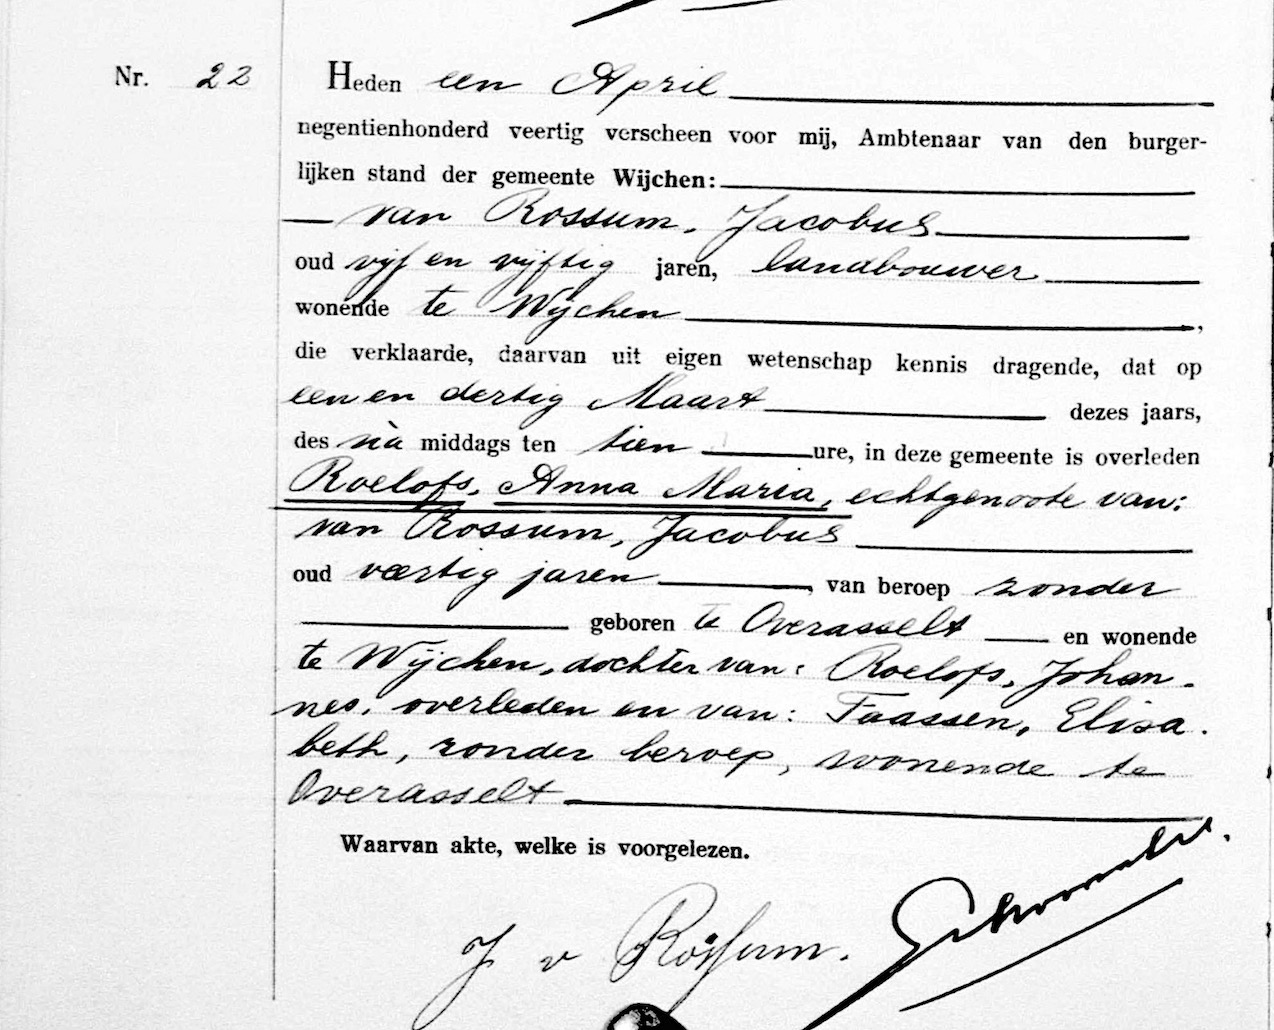 Nr. 22 Heden een April
negentienhonderd veertig verscheen voor mij, Ambtenaar van den burger-
lijken stand der gemeente Wijchen:
van Rossum, Jacobus
oud vijf en vijftig jaren, landbouwer
wonende te Wijchen,
die verklaarde, daarvan uit eigen wetenschap kennis dragende, dat op
een en dertig Maart dezes jaars,
des na middags ten tien ure, in deze gemeente is overleden
Roelofs, Anna Maria, echtgenoote van:
van Rossum, Jacobus
oud veertig jaren, van beroep zonder
geboren te Overasselt en wonende
te Wijchen, dochter van: Roelofs, Johan-
nes, overleden en van: Faassen, Elisa-
beth, zonder beroep, wonende te
Overasselt
Waarvan akte, welke is voorgelezen.
J v Rossum.